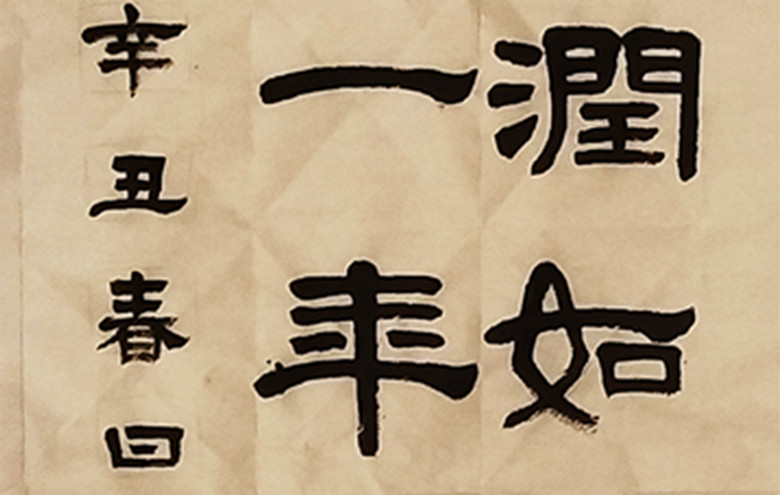 潤如
一年
辛丑春日